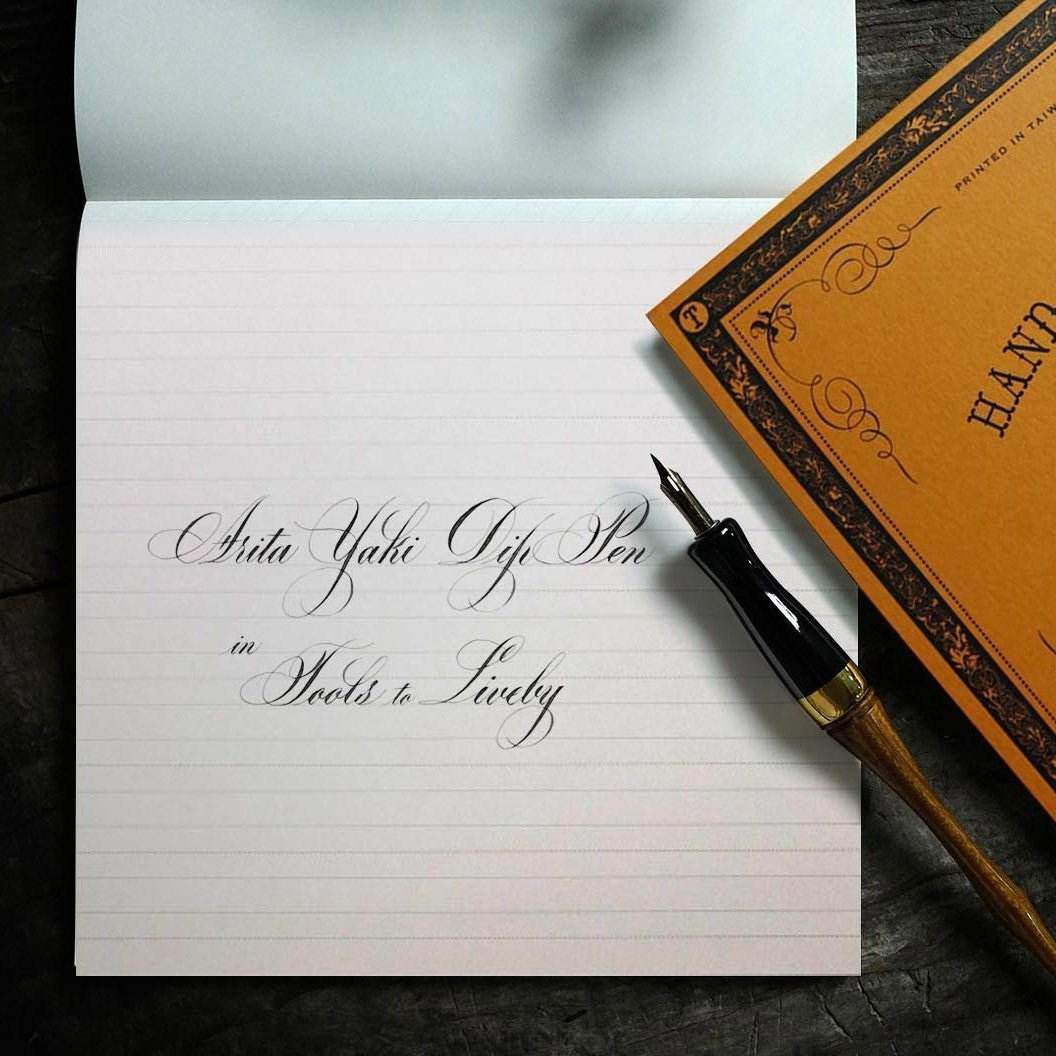 Arita Yaki Dip Pen
in
Tools to Liveby
PRINTED IN TAIW
HAND
T